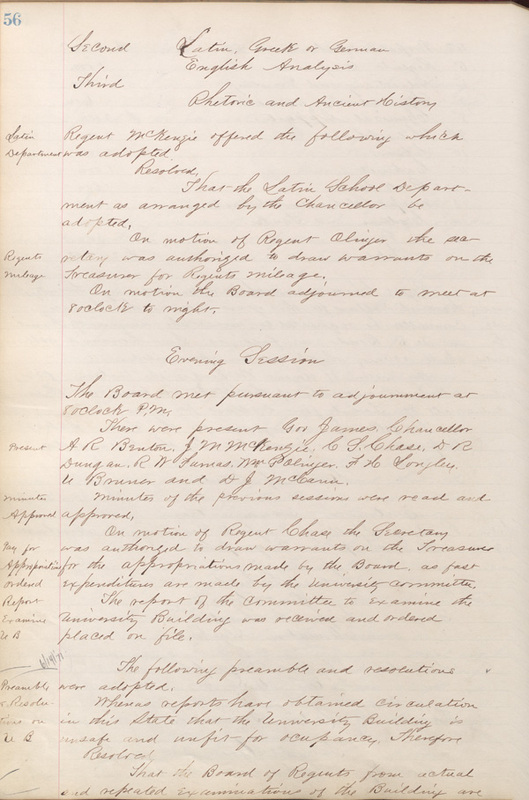 56
Second Latin, Greek or German
English Analysis
Third
Rhetoric and Ancient History
Latin Department
Regent McKenzie offered the following which
was adopted
Resolved,
That the Latin School Depart-
ment as arranged by the Chancellor be
adopted,
On motion of Regent Olinger the sec
Regents mileage
retary was authorized to draw warrants on the
Treasurer for Regents mileage.
On motion the Board adjourned to meet at
8 oclock to night.
Evening Session
The Board met pursuant to adjournment at
8 oclock P.M,
There were present Gov James, Chancellor
Present
A R Benton, J M McKenzie, C S. Chase, D R
Dungan, R W Furnas, Wm B Olinger, F H Longley,
U Bruner and D J McCann.
Minutes Approved
Minutes of the previous sessions were read and
approved,
On motion of Regent Chase the Secretary
Pay for Appropriations ordered
was authorized to draw warrants on the Treasurer
for the appropriations made by the Board, as fast
expenditures are made by the University committee.
Report Examine U B
The report of the committee to examine the
University Building was received and ordered
placed on file.
6/19/71
The following preamble and resolutions
Preamble & Resolutions on U B
were adopted.
Whereas reports have obtained circulation
in this State that the University Building is
unsafe and unfit for ocupancy, Therefore
Resolved
That the Board of Regents from actual
and repeated examinations of the Building are